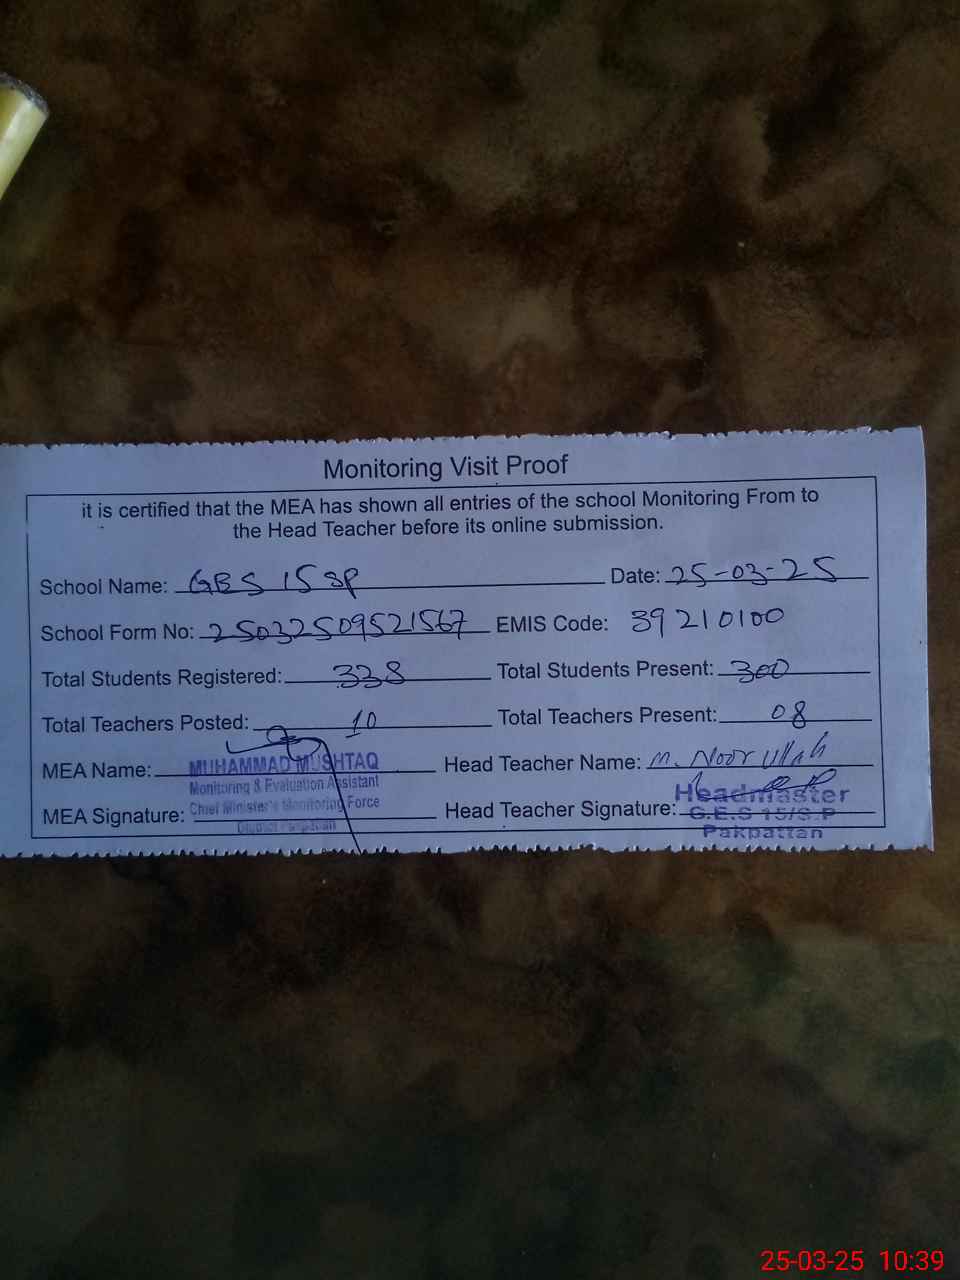 Monitoring Visit Proof
it is certified that the MEA has shown all entries of the school Monitoring From to
the Head Teacher before its online submission.
School Name: GES 15 SP Date: 25-03-25
School Form No: 25032509521567 EMIS Code: 39210100
Total Students Registered: 338 Total Students Present: 300
Total Teachers Posted: 10 Total Teachers Present: 08
MEA Name: MUHAMMAD MUSHTAQ Head Teacher Name: M. Noor Ullah
Monitoring & Evaluation Assistant
MEA Signature: Chief Minister's Monitoring Force Head Teacher Signature: Headmaster
District Pakpattan G.E.S 15/S.P
Pakpattan
25-03-25 10:39